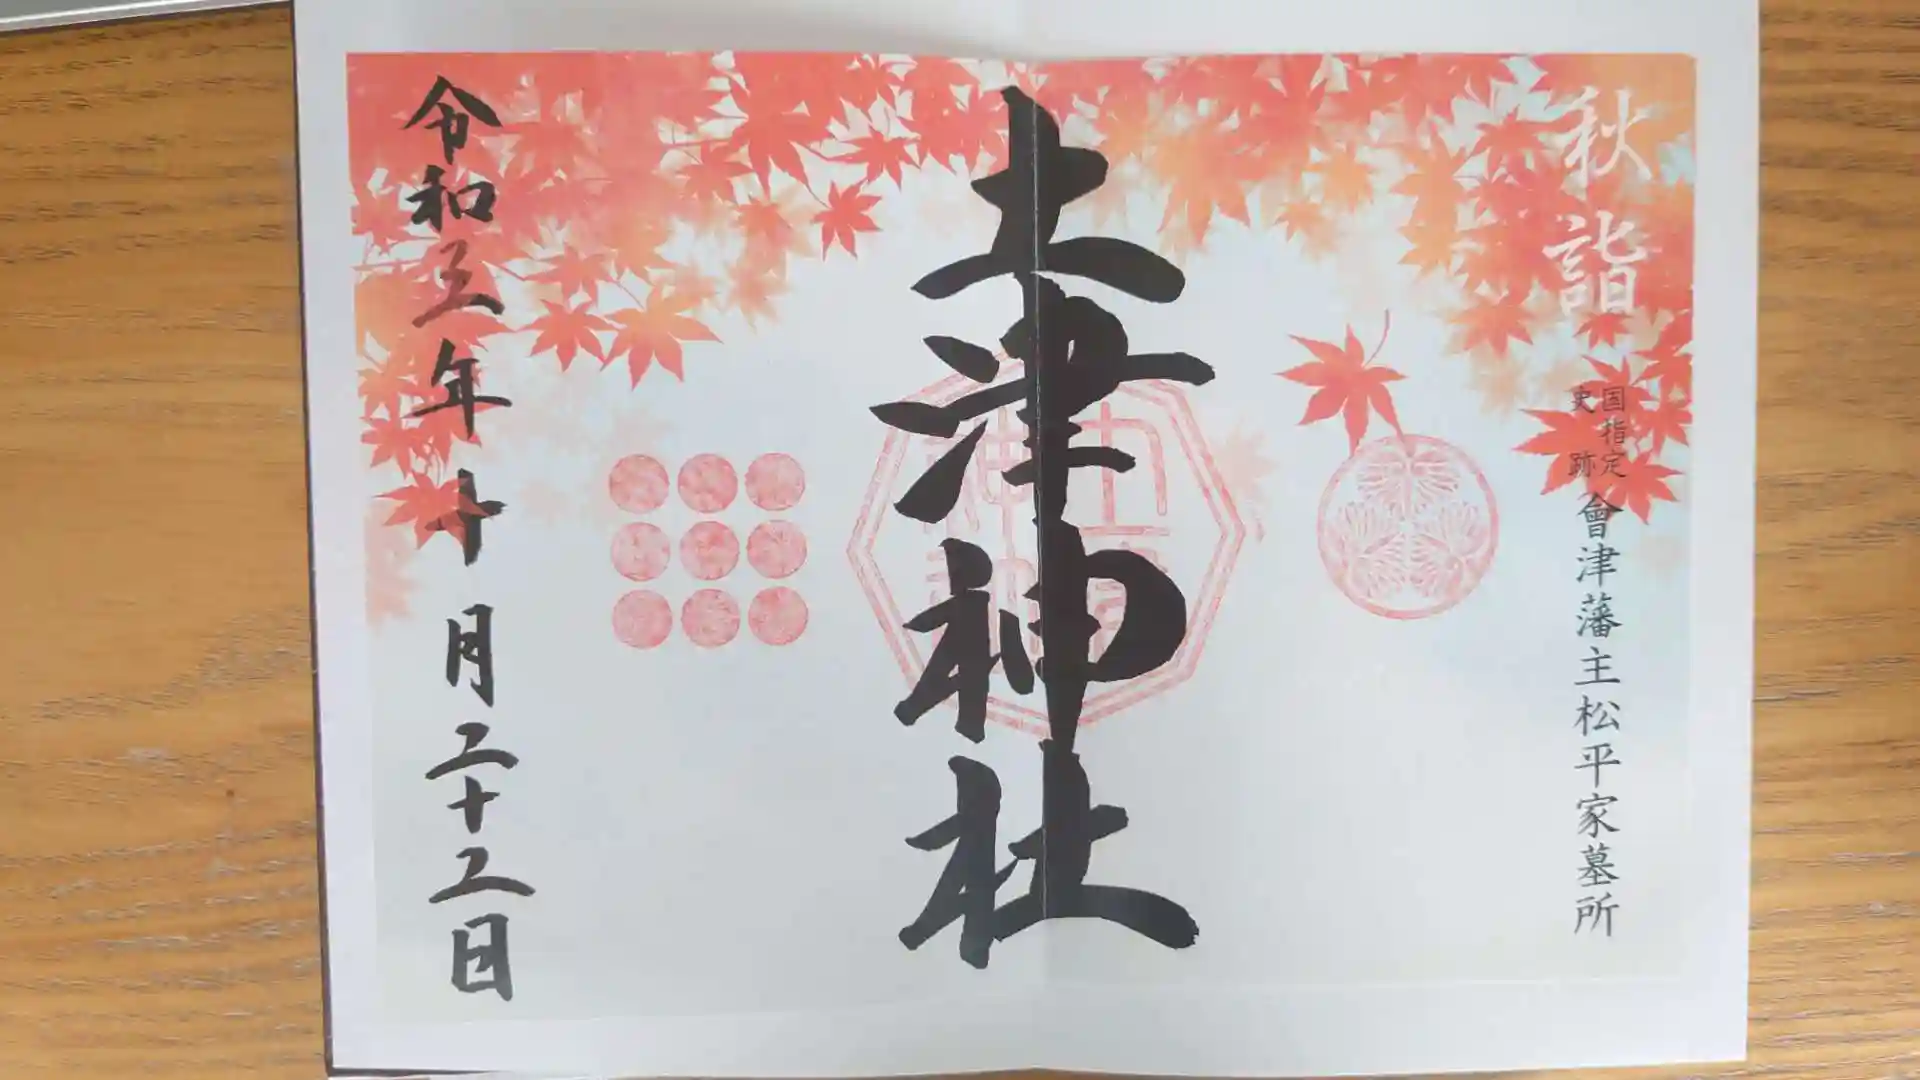 秋詣
国指定
史跡
會津藩主松平家墓所
土津神社
令和三年十月二十二日